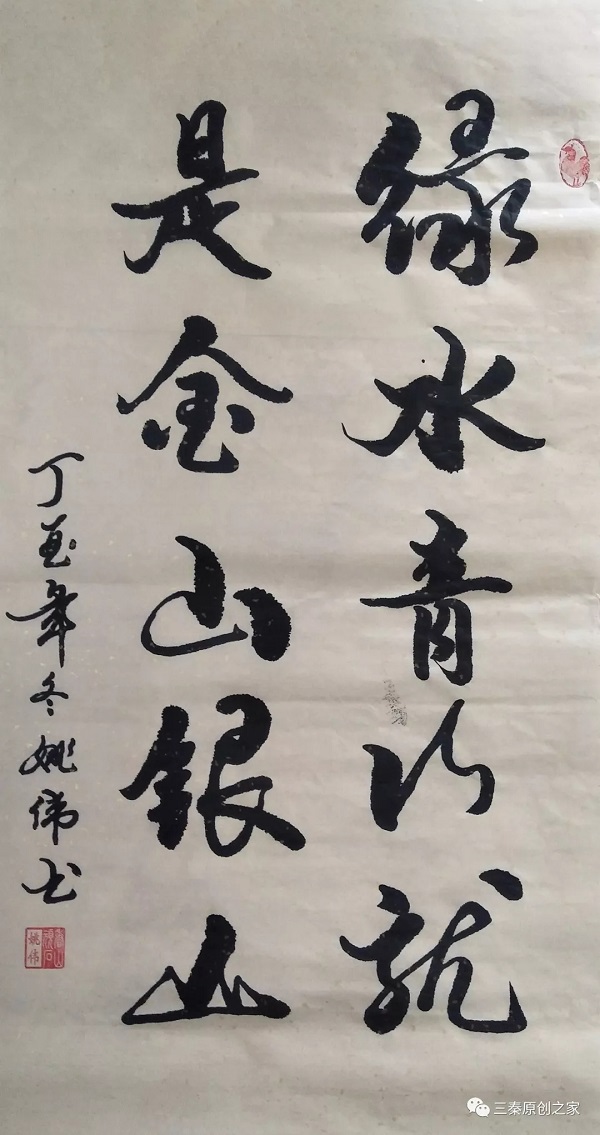 绿水青山就
是金山银山
丁酉年冬姚伟书
姚伟
三秦原创之家